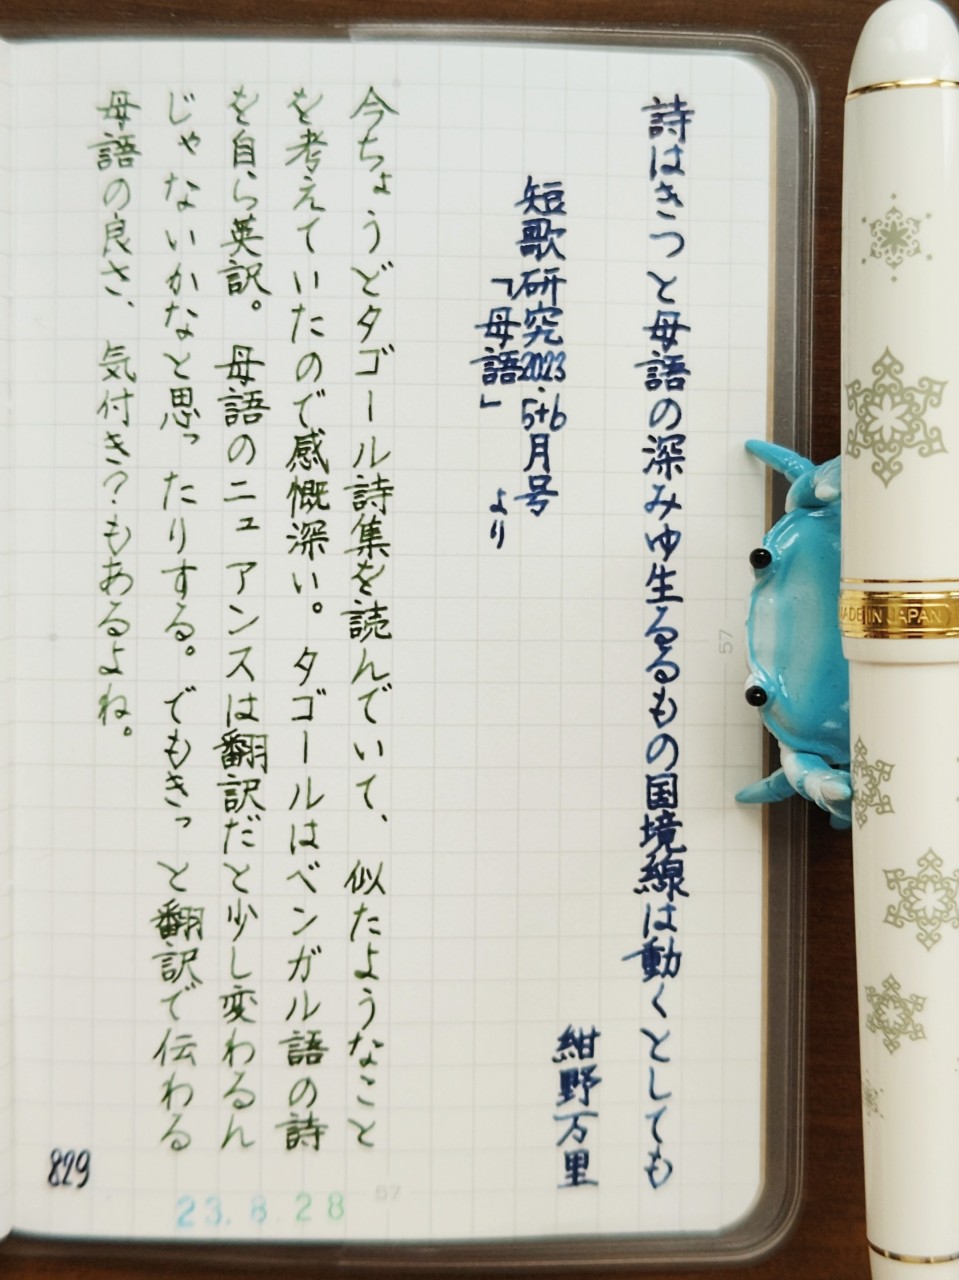 詩はきつと母語の深みゆ生るるもの国境線は動くとしても
紺野万里
短歌研究2023.5+6月号
「母語」より
今ちょうどタゴール詩集を読んでいて、似たようなこと
を考えていたので感慨深い。タゴールはベンガル語の詩
を自ら英訳。母語のニュアンスは翻訳だと少し変わるん
じゃないかなと思ったりする。でもきっと翻訳で伝わる
母語の良さ、気付き？もあるよね。
829
23.8.28
57
57
MADE IN JAPAN